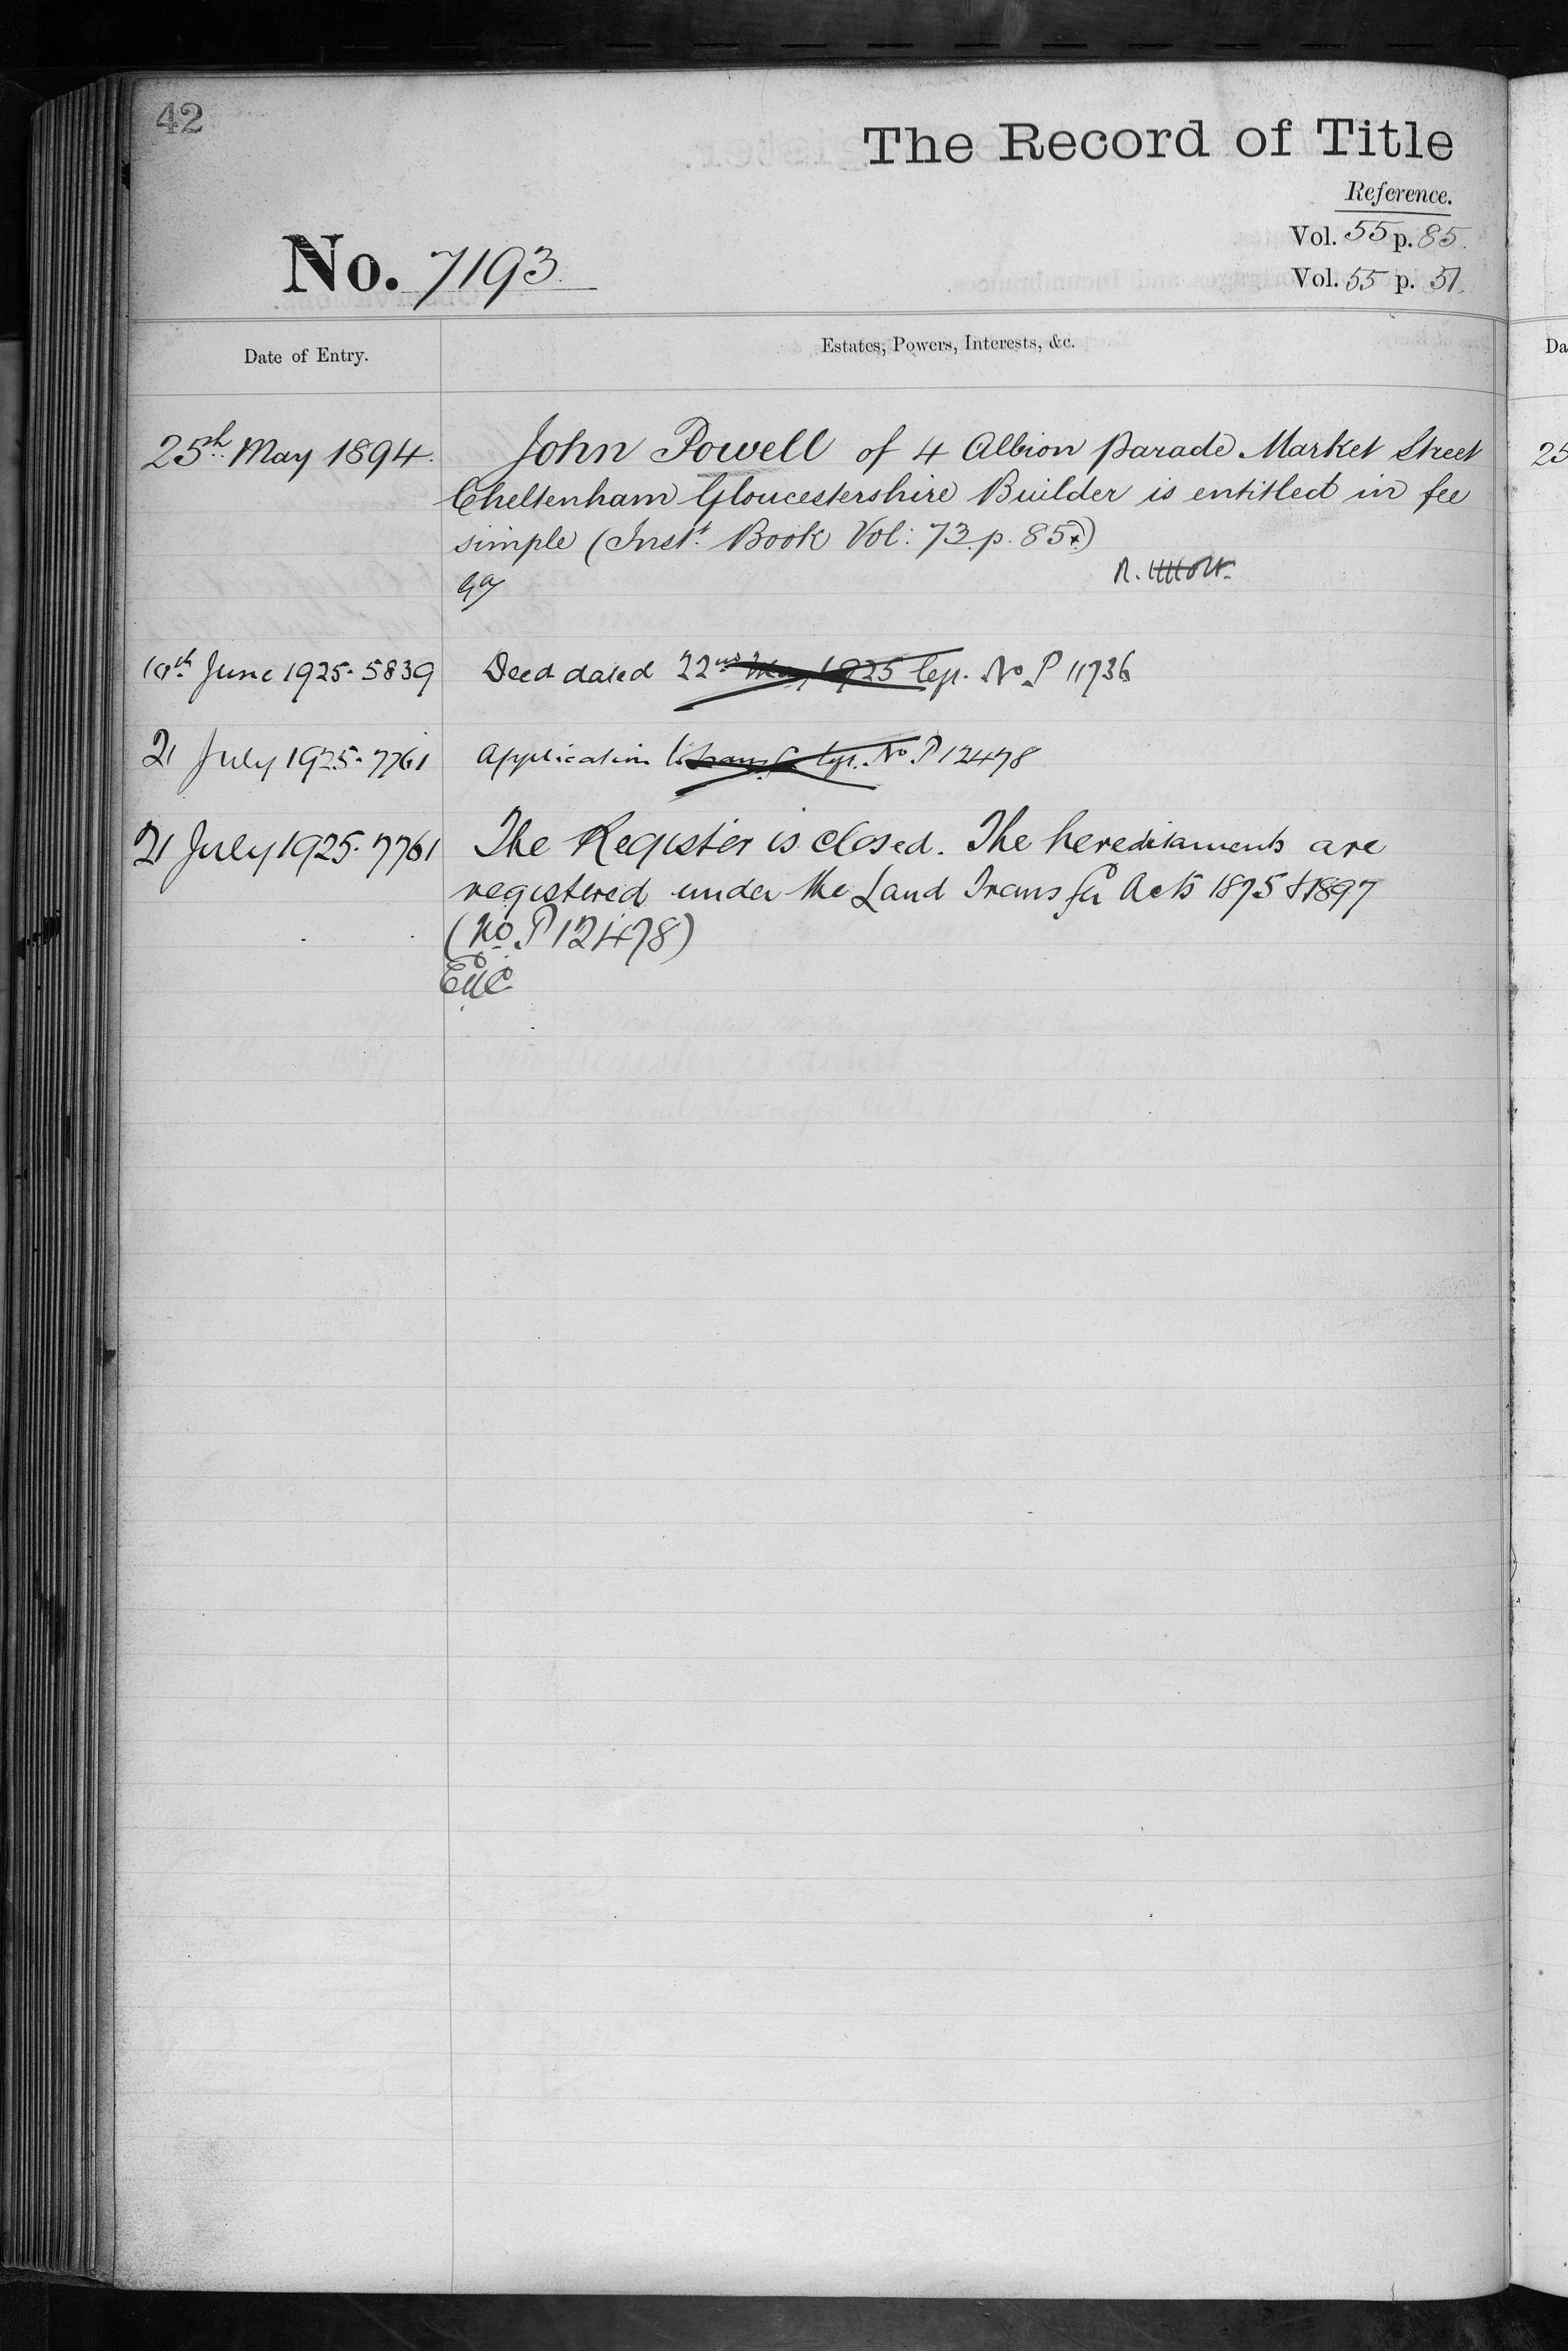 42
The Record of Title
Reference.
Vol. 55 p. 85.
No. 7193.
Vol. 55 p. 51.
Date of Entry.
Estates, Powers, Interests, &c.
25th. May 1894.
John Powell of 4 Albion Parade Market Street
Cheltenham Gloucestershire Builder is entitled in fee
simple (Inst. Book Vol: 73. p. 85.)
10th June 1925. 5839
Deed dated 22nd May 1925 No P 11736
21 July 1925. 7761
Application to transfer No P 12478
21 July 1925. 7761
The Register is closed. The hereditaments are
registered under the Land Transfer Acts 1875 & 1897
(No P 12478)
Da
25